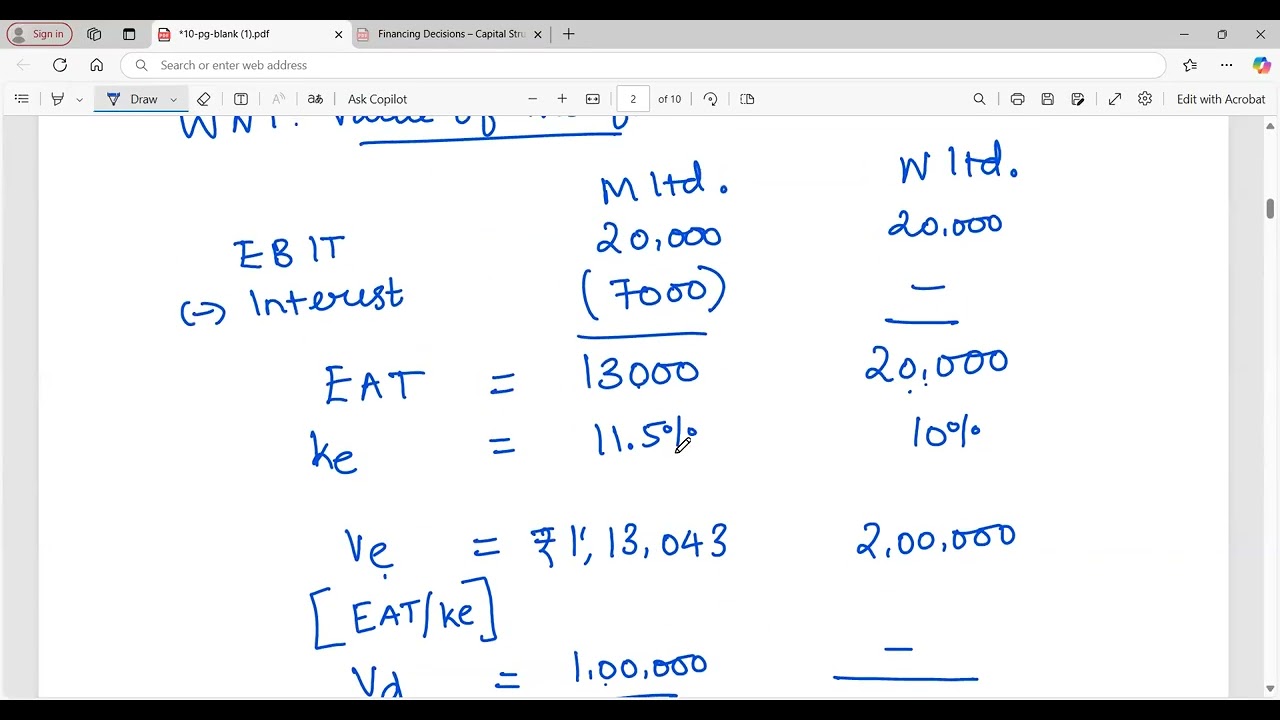 Sign in
*10-pg-blank (1).pdf
Financing Decisions – Capital Stru
Search or enter web address
Draw
Ask Copilot
2 of 10
Edit with Acrobat
M ltd. W ltd.
EBIT 20,000 20,000
(-) Interest (7000) —
EAT = 13000 20,000
ke = 11.5% 10%
Ve = ₹1,13,043 2,00,000
[EAT/ke]
Vd = 1,00,000 —